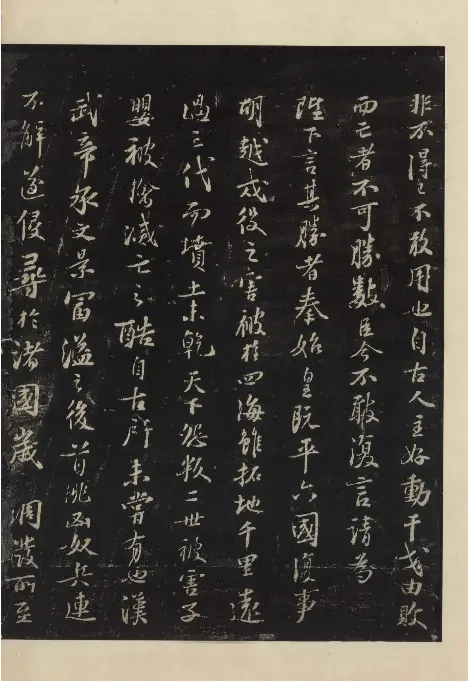 非不得已不敢用也自古人主好動干戈由敗
而亡者不可勝數臣今不敢復言請為
陛下言其勝者秦始皇既平六國復事
胡越戍役之害被於四海雖拓地千里遠
過三代而墳土未乾天下怨叛二世被害子
嬰被擒滅亡之酷自古所未嘗有也漢
武帝承文景富溢之後首挑匈奴兵連
不解遂侵尋於諸國歲調發所至